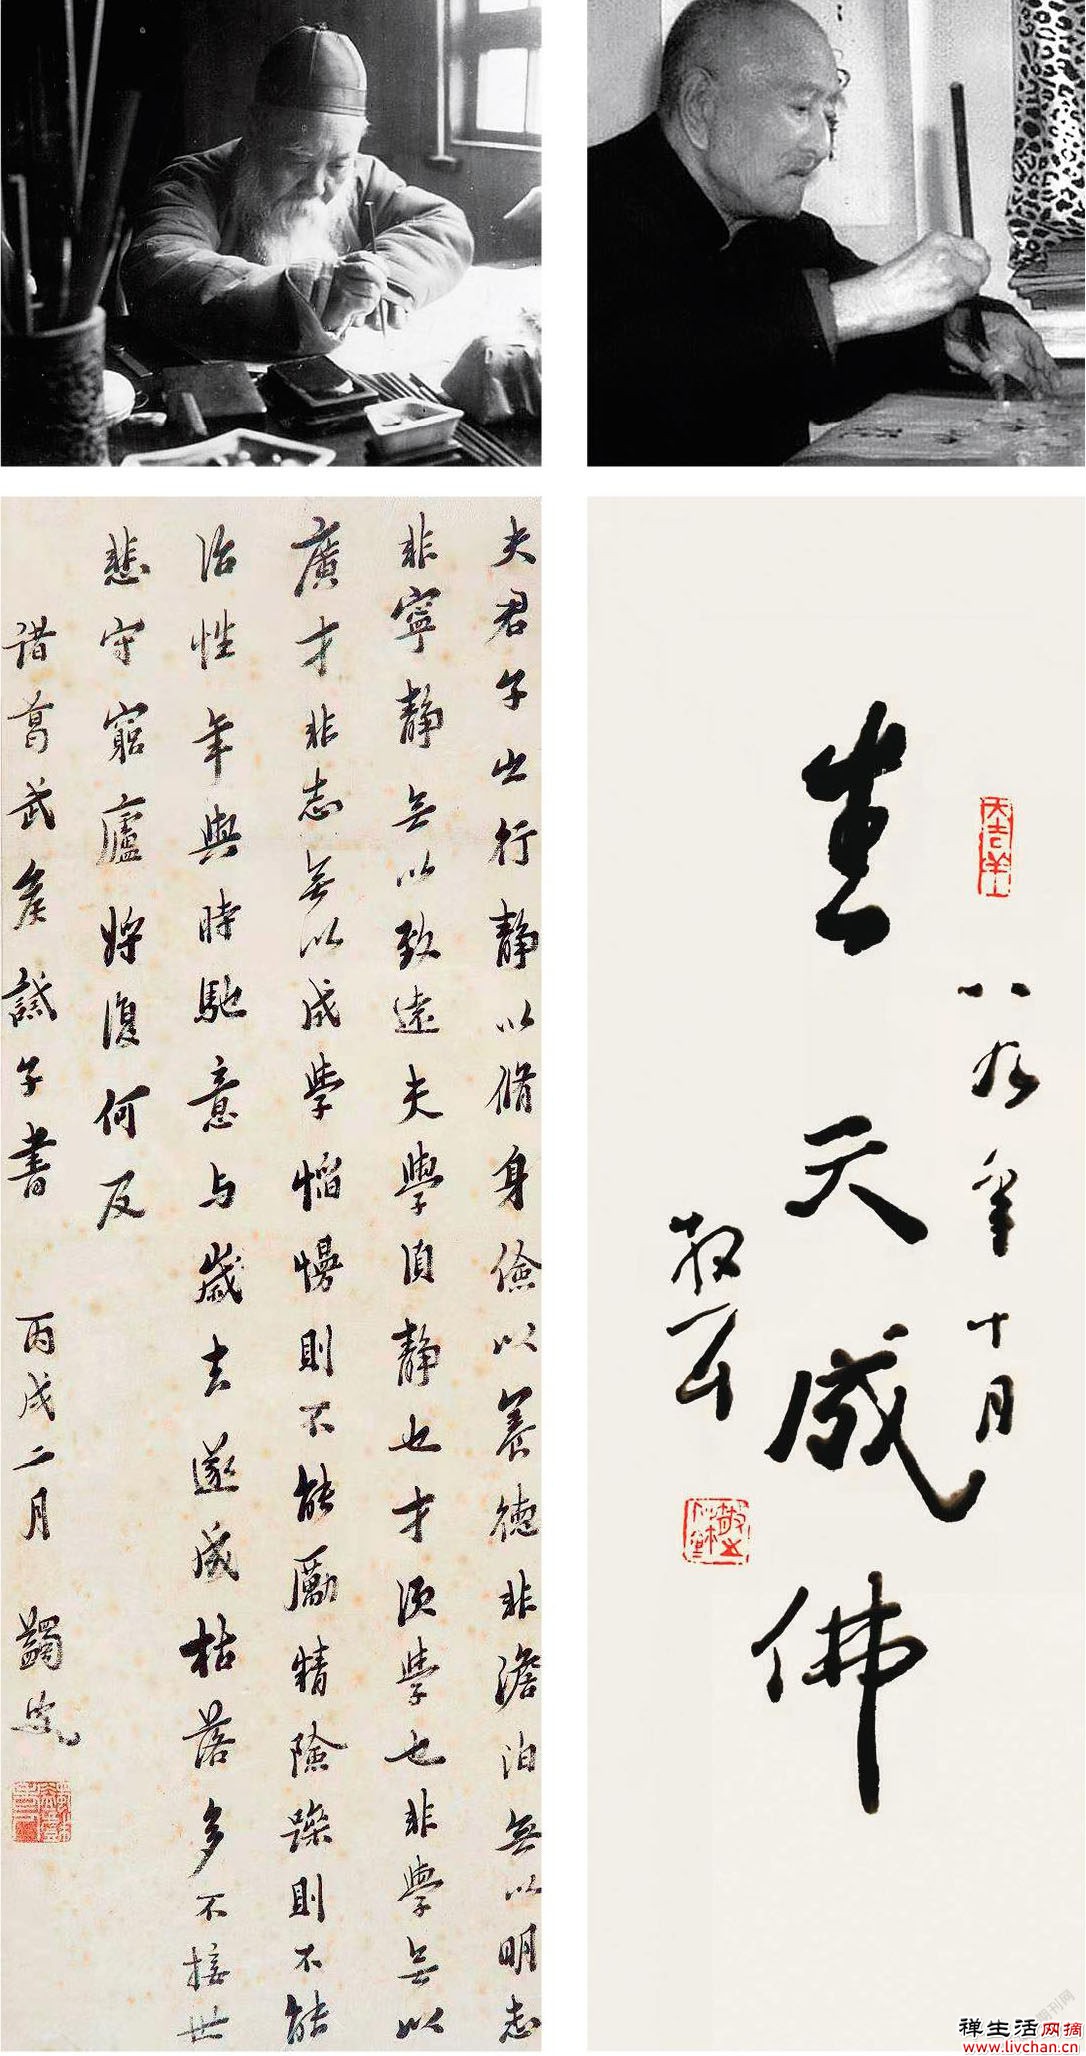 夫君子之行靜以脩身儉以養德非澹泊無以明志
非寧靜無以致遠夫學須靜也才須學也非學無以
廣才非志無以成學慆慢則不能勵精險躁則不能
治性年與時馳意与歲去遂成枯落多不接世
悲守窮廬將復何及
諸葛武矦誡子書 丙戌二月 蠲叟
大吉羊
八九年十月
生天成佛
散耳
禅生活网摘
www.livchan.cn